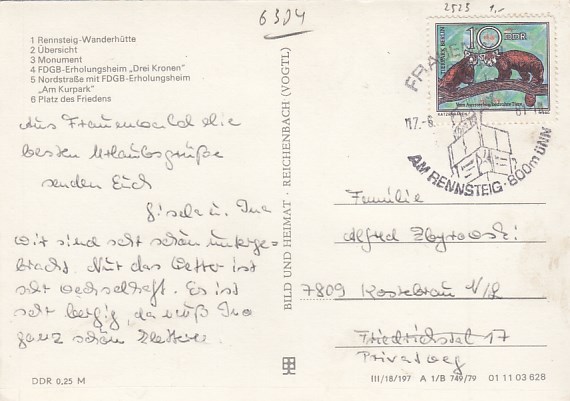 6304
2523 1,-
1 Rennsteig-Wanderhütte
2 Übersicht
3 Monument
4 FDGB-Erholungsheim „Drei Kronen"
5 Nordstraße mit FDGB-Erholungsheim
„Am Kurpark"
6 Platz des Friedens
Aus Frauenwald die
besten Urlaubsgrüße
senden Euch
Gisela u. Ina
Wir sind sehr schön unterge-
bracht. Nur das Wetter ist
sehr wechselhaft. Es ist
sehr bergig, da muß Ina
ganz schön klettern.
DDR 0,25 M
BILD UND HEIMAT · REICHENBACH (VOGTL)
TIERPARK BERLIN
10 DDR
Vom Aussterben bedrohte Tiere
KATZENBÄREN
FRAUEN
17.-6.
AM RENNSTEIG · 800m ÜNN
Familie
Alfred Zbyrowski
7809 Kostebrau N/L
Friedrichstal 17
Privatweg
III/18/197 A 1/B 749/79 01 11 03 628